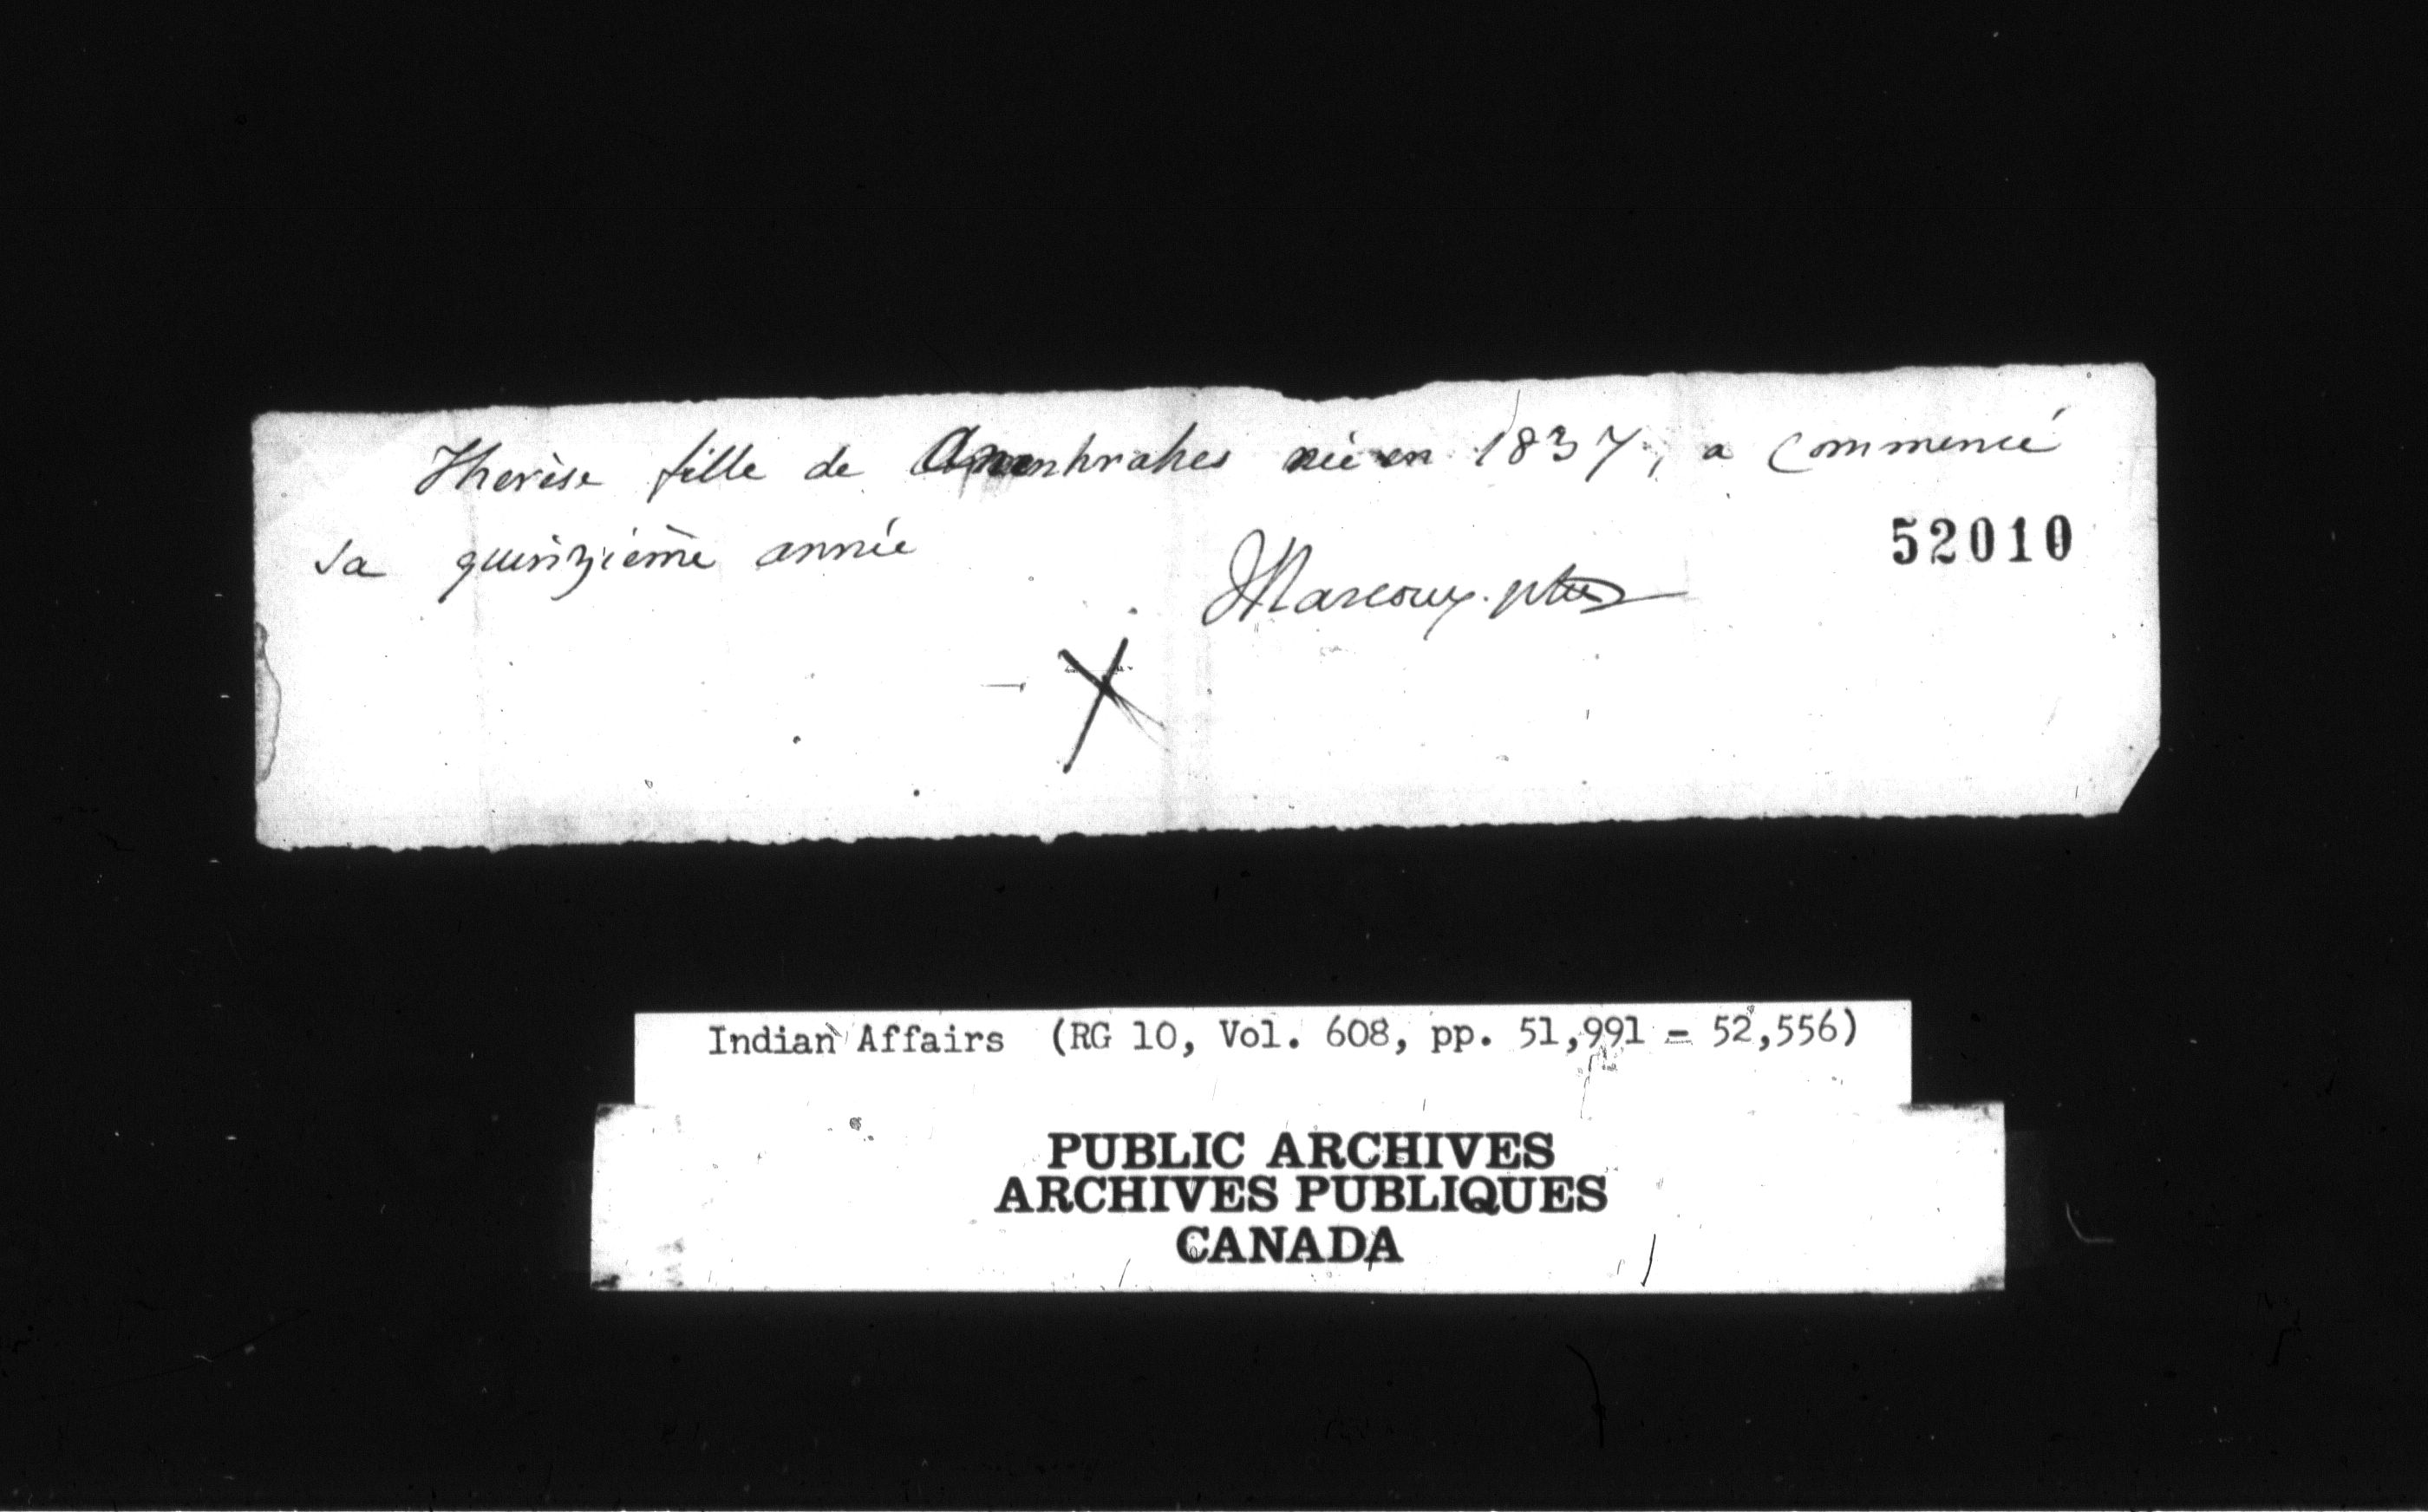 Therèse fille de née en 1837, a commencé
sa quinzième année
52010
JMarcoux. ptre
X
Indian Affairs (RG 10, Vol. 608, pp. 51,991 = 52,556)
PUBLIC ARCHIVES
ARCHIVES PUBLIQUES
CANADA